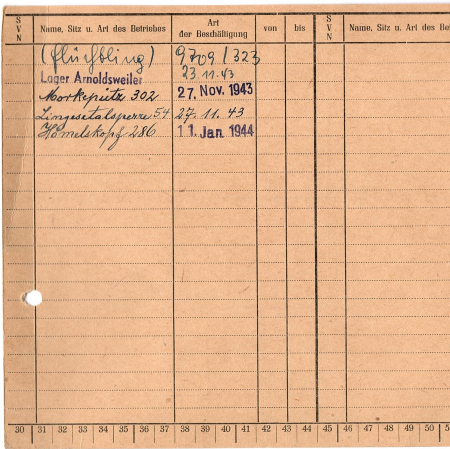 S V N Name, Sitz u. Art des Betriebes Art der Beschäftigung von bis S V N Name, Sitz u. Art des Be
(Flüchtling) 9709/323
Lager Arnoldsweiler 23.11.43
302 27. Nov. 1943
Lingesetalsperre 54 27.11.43
Hömelskopf 286 11. Jan. 1944
30 31 32 33 34 35 36 37 38 39 40 41 42 43 44 45 46 47 48 49 50 5